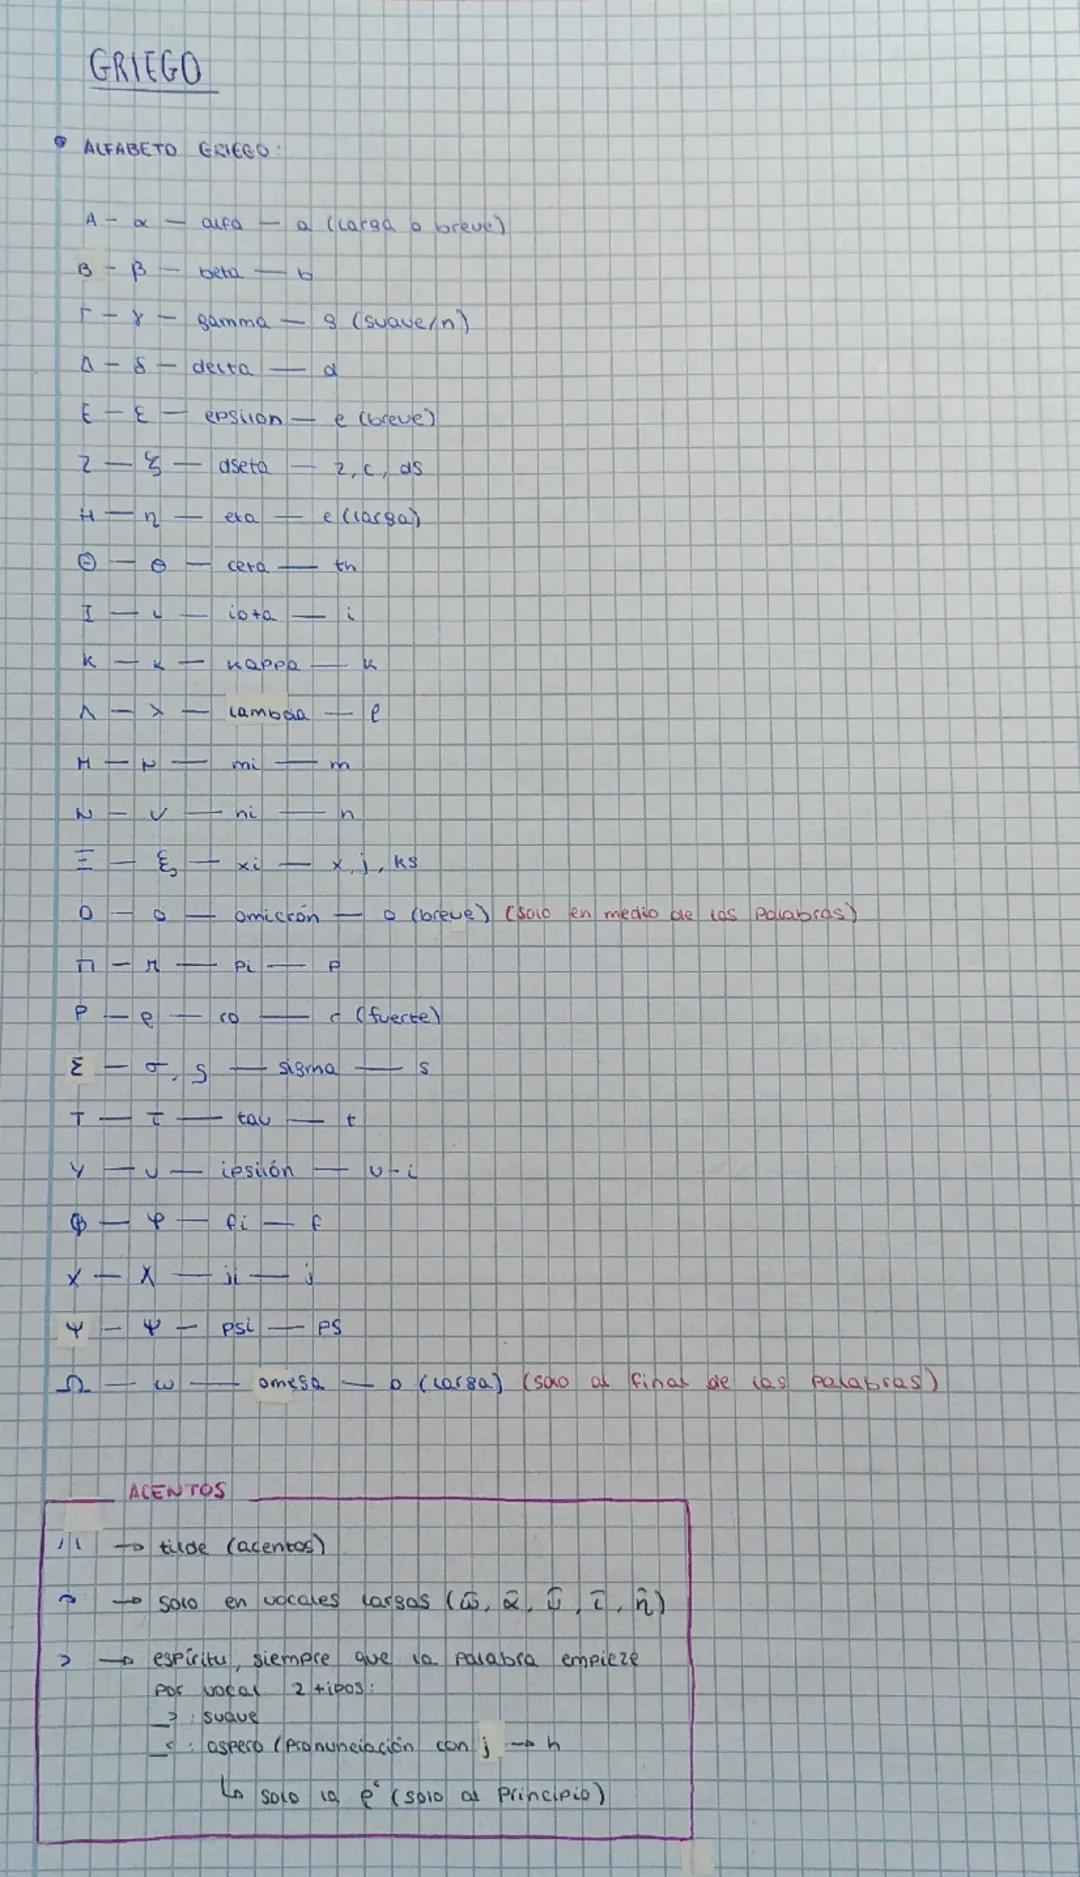 GRIEGO
• ALFABETO GRIEGO:
A - α - alfa - a (larga o breve)
B - β - beta - b
Γ - γ - gamma - g (suave/n)
Δ - δ - delta - d
E - ε - epsilon - e (breve)
Z - ζ - dseta - z, c, ds
H - η - eta - e (larga)
Θ - θ - ceta - th
I - ι - iota - i
K - κ - kappa - k
Λ - λ - lambda - l
M - μ - mi - m
N - ν - ni - n
Ξ - ξ - xi - x, j, ks
O - o - omicrón - o (breve) (solo en medio de las palabras)
Π - π - pi - p
P - ρ - ro - r (fuerte)
Σ - σ, ς - sigma - s
T - τ - tau - t
Y - υ - ipsilón - u-i
Φ - φ - fi - f
X - χ - ji - j
Ψ - ψ - psi - ps
Ω - ω - omega - o (larga) (solo al final de las palabras)
ACENTOS
´/` → tilde (acentos)
~ → solo en vocales largas (ῶ, ᾶ, ῦ, ῖ, ῆ)
᾿ → espíritu, siempre que la palabra empieze
por vocal 2 tipos:
_᾿: suave
_῾: aspero (pronunciación con j → h
↳ solo la ῥ (solo al principio)